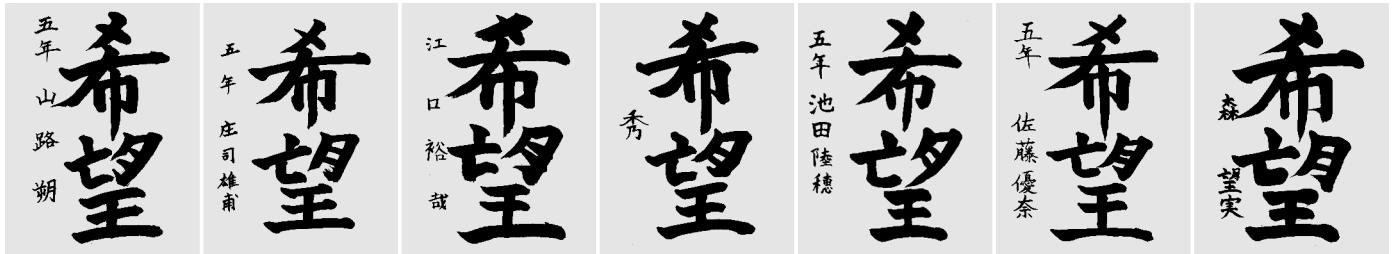 希望
五年 山路 朔
希望
五年 庄司雄甫
希望
江口裕哉
希望
秀
希望
五年 池田陸穂
希望
五年 佐藤優奈
希望
森 望実